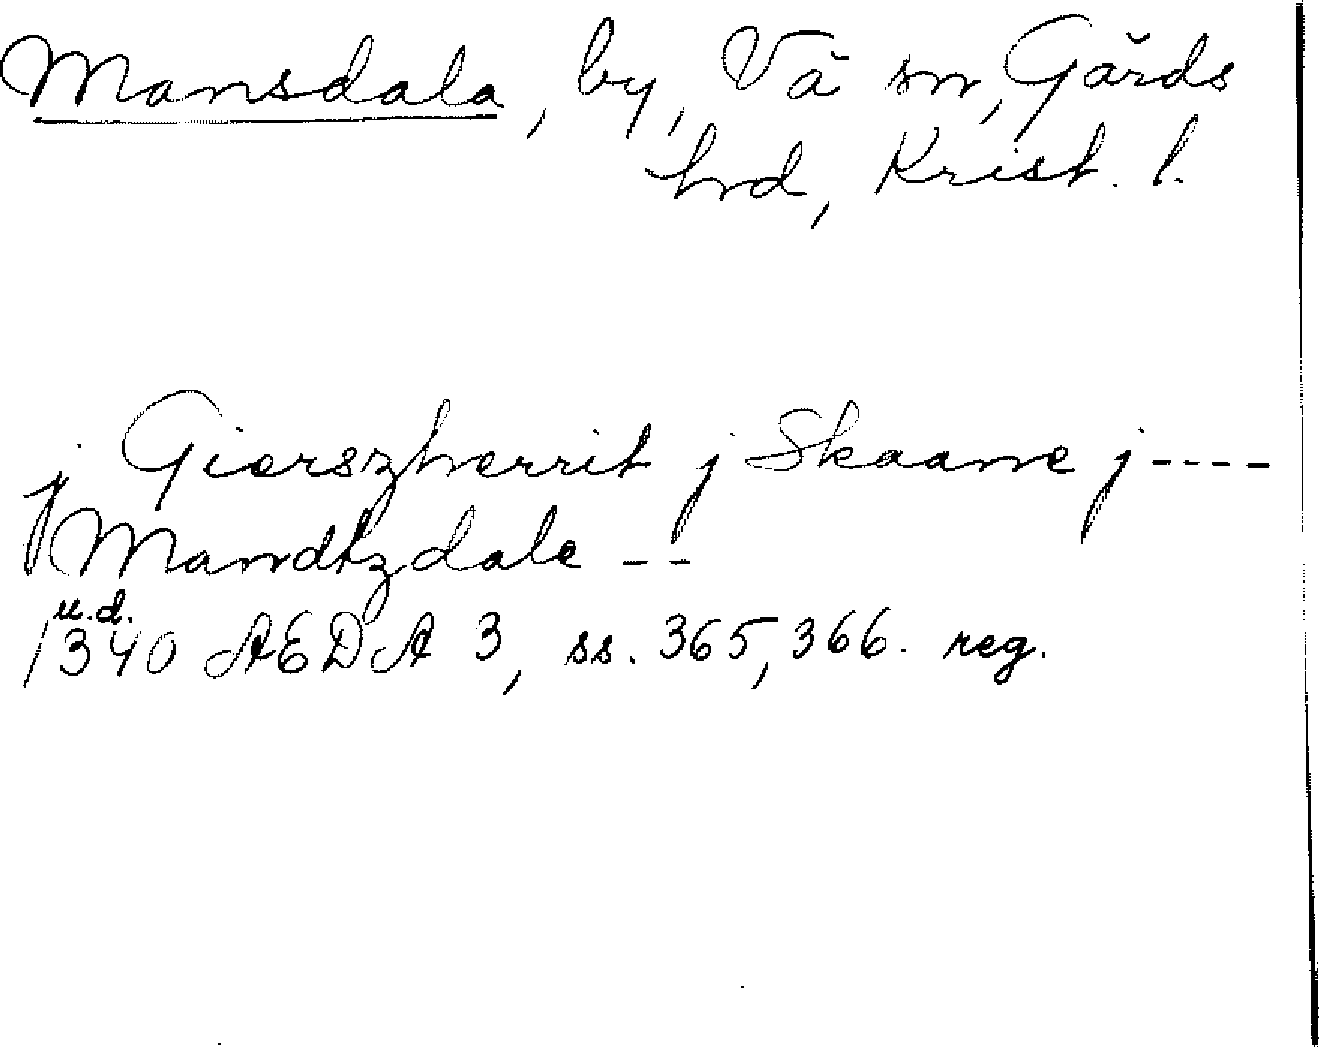 Mansdala, by, Vä sn, Gärds
hrd, Krist. l.
j Gierszherrit j Skaane j ----
Mandtzdale --
u.d.
1340 AEDA 3, ss. 365, 366. reg.